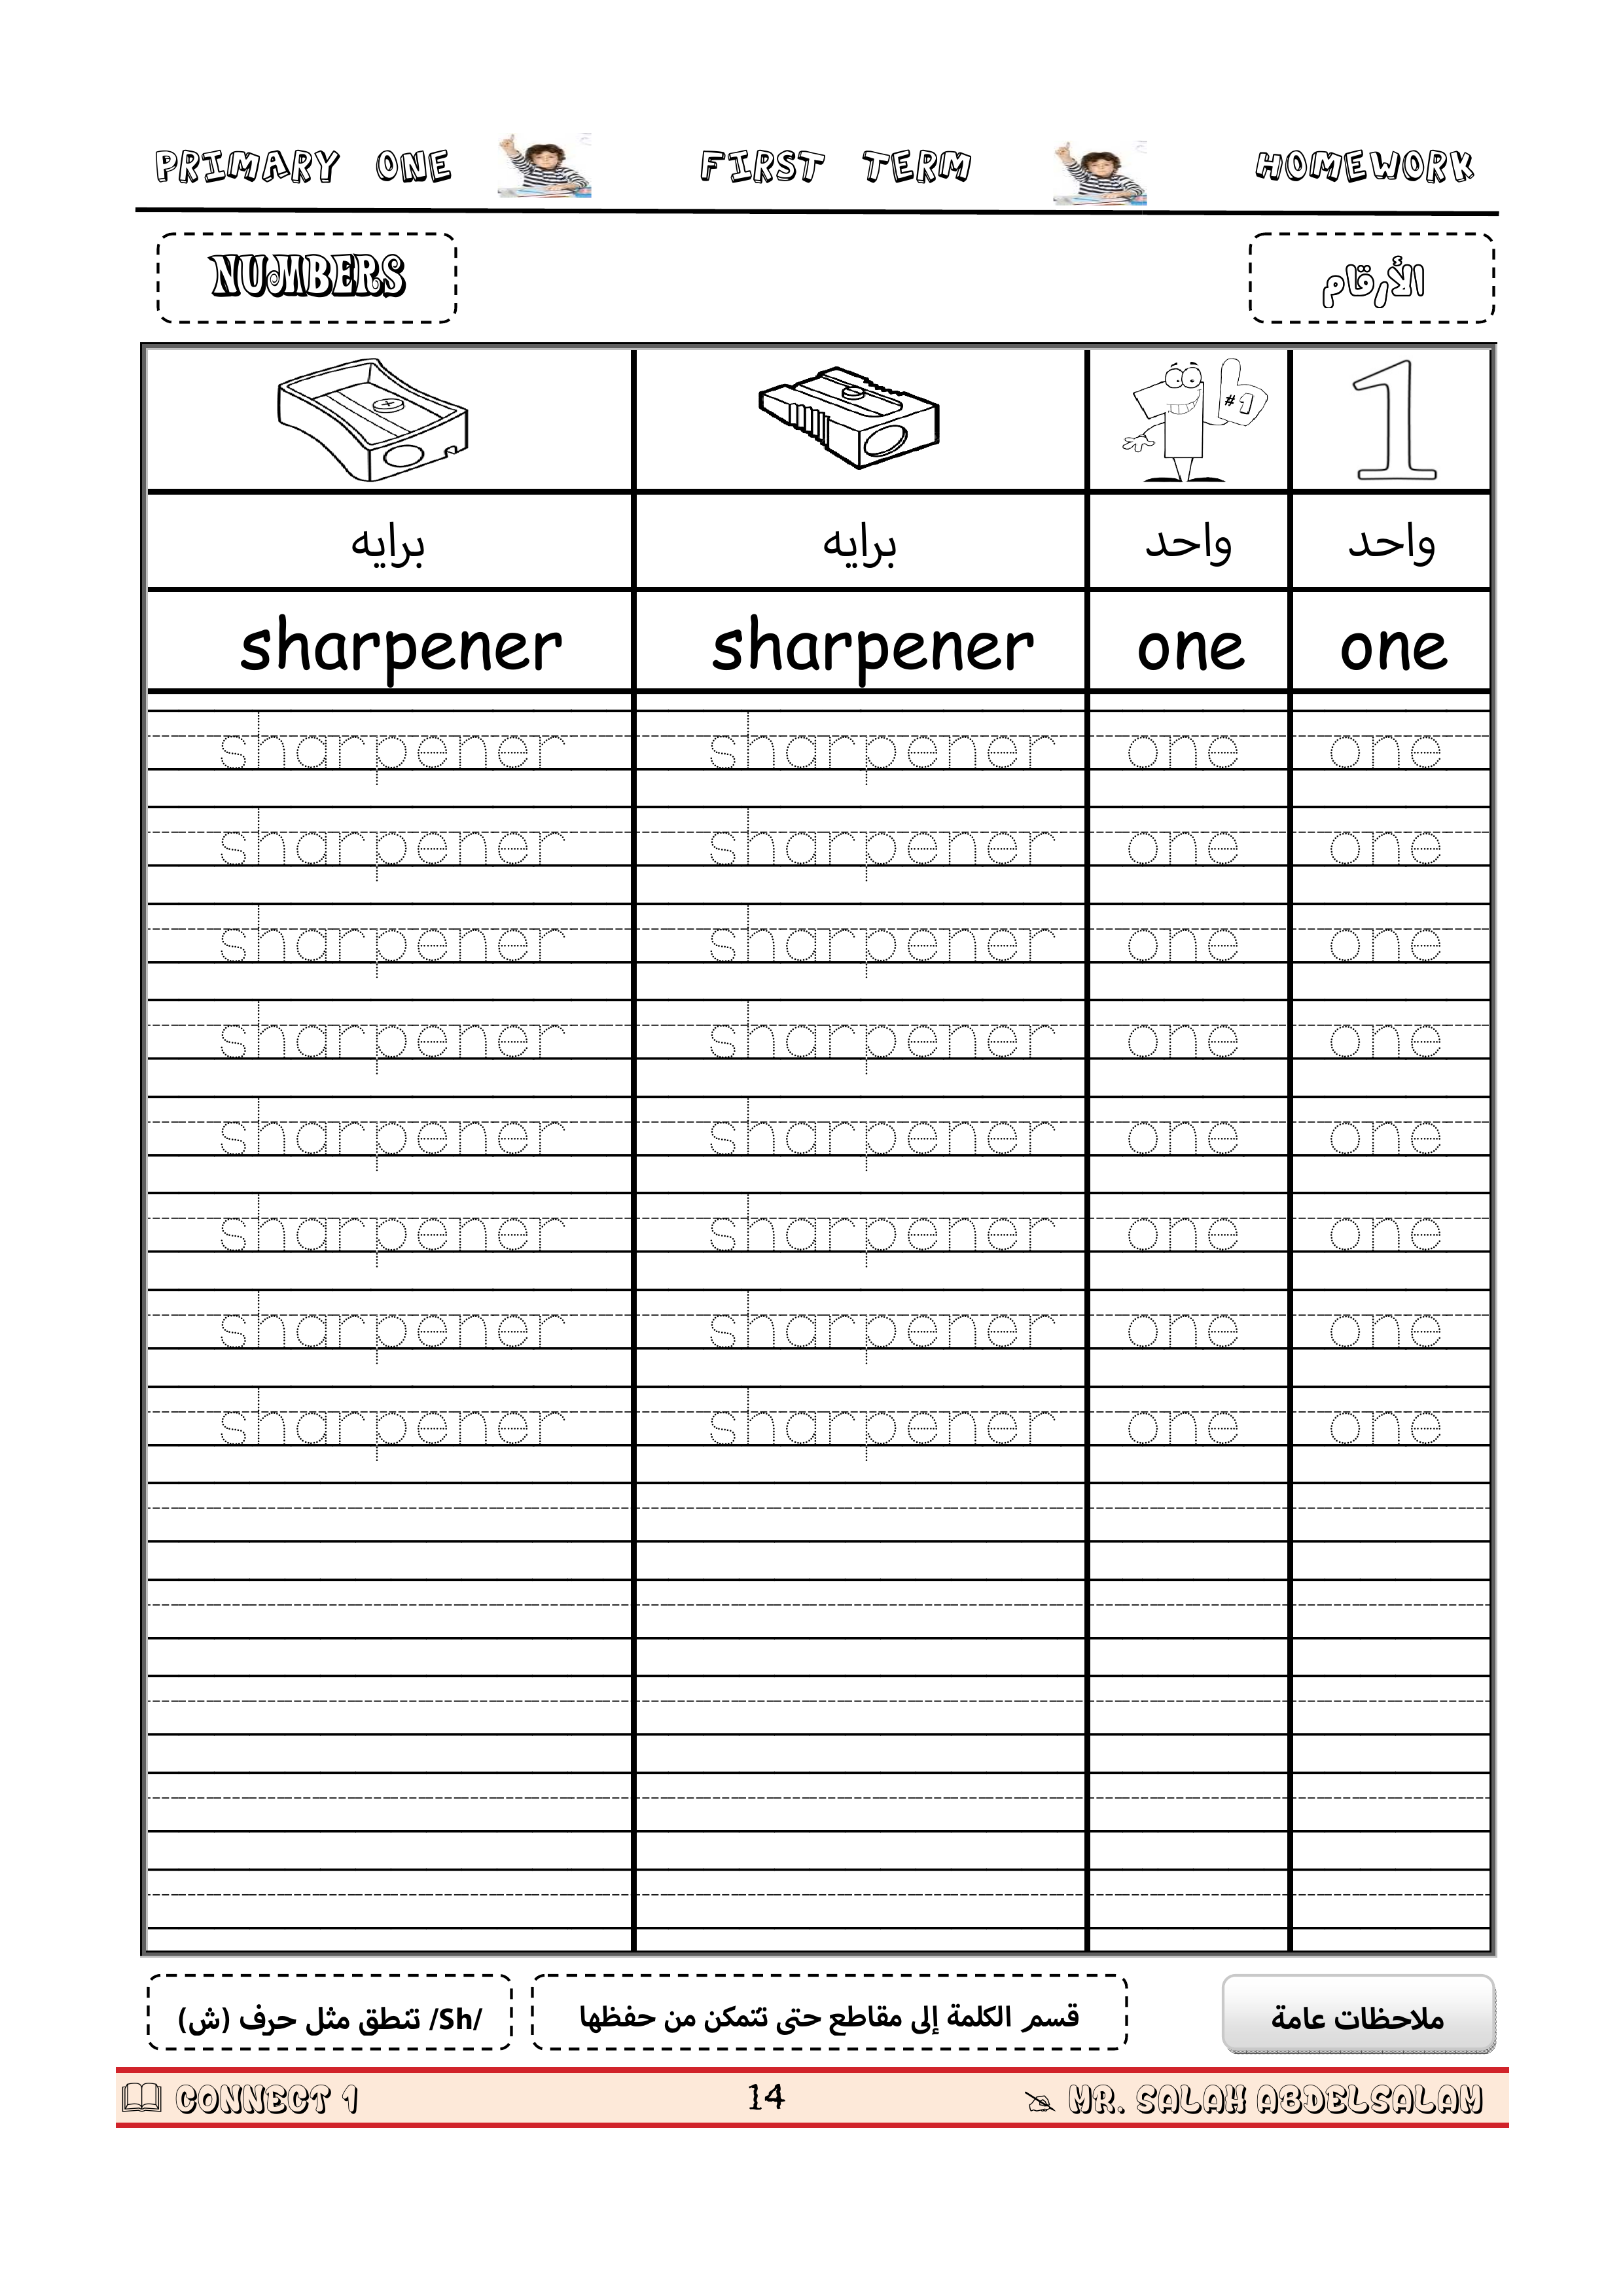 PRIMARY ONE FIRST TERM HOMEWORK
NUMBERS الأرقام
#1 1
برايه برايه واحد واحد
sharpener sharpener one one
sharpener sharpener one one
sharpener sharpener one one
sharpener sharpener one one
sharpener sharpener one one
sharpener sharpener one one
sharpener sharpener one one
sharpener sharpener one one
sharpener sharpener one one
ملاحظات عامة
قسم الكلمة إلى مقاطع حتى تتمكن من حفظها
/Sh/ تنطق مثل حرف (ش)
CONNECT 1 14 MR. SALAH ABDELSALAM